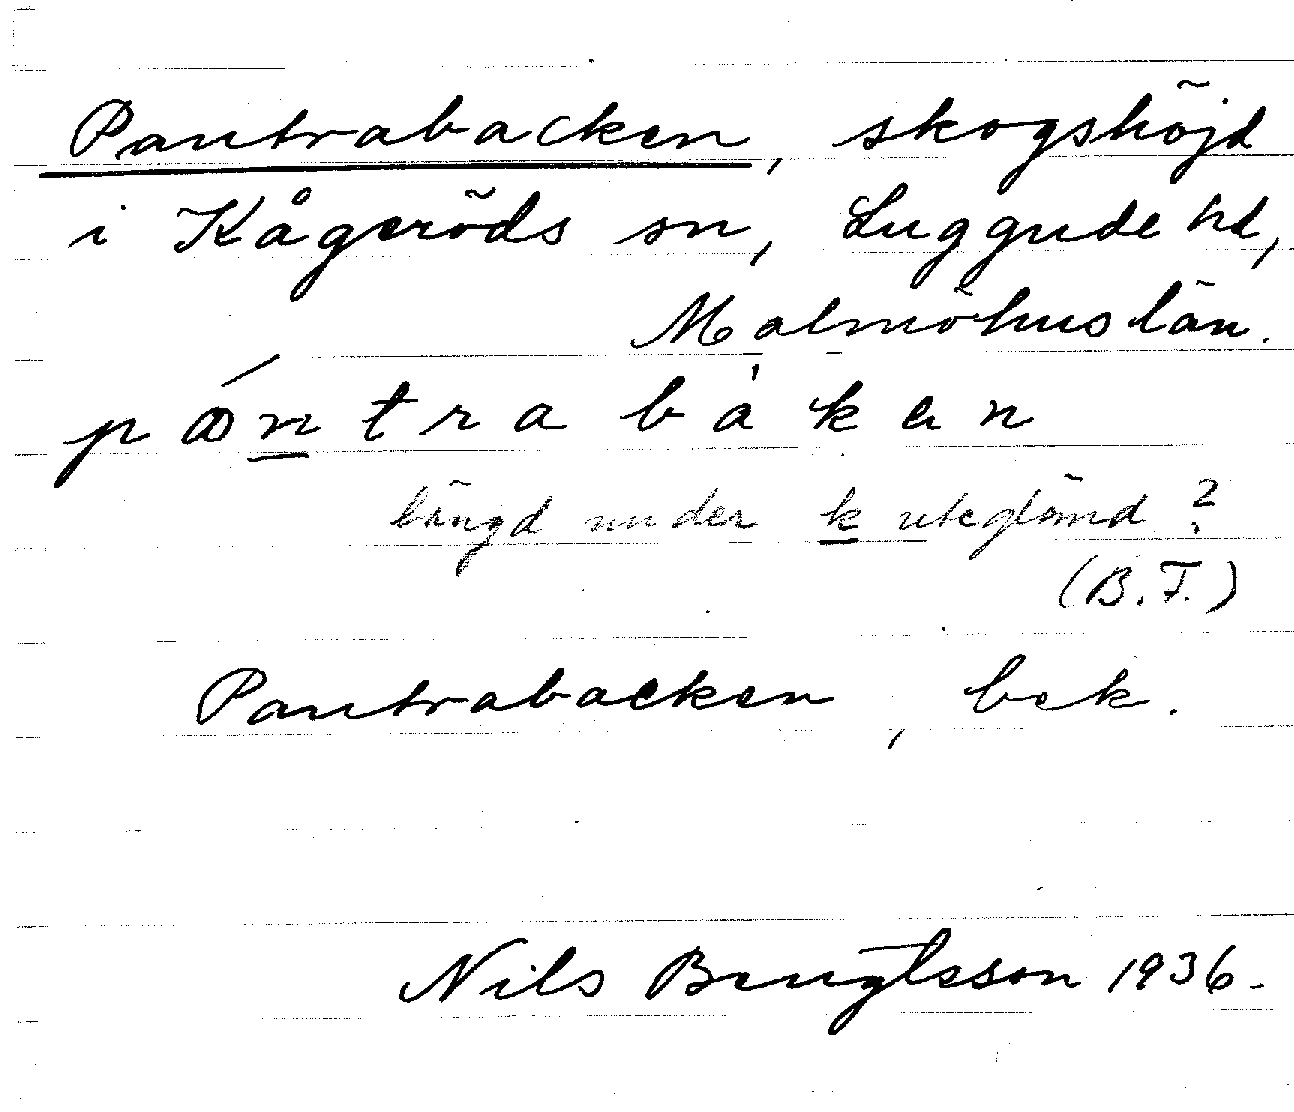 Pantrabacken, skogshöjd
i Kågeröds sn, Luggude hd,
Malmöhus län.
pántrabàkan
längd under k uteglömd?
(B.F.)
Pantrabacken, bek.
Nils Bengtsson 1936.